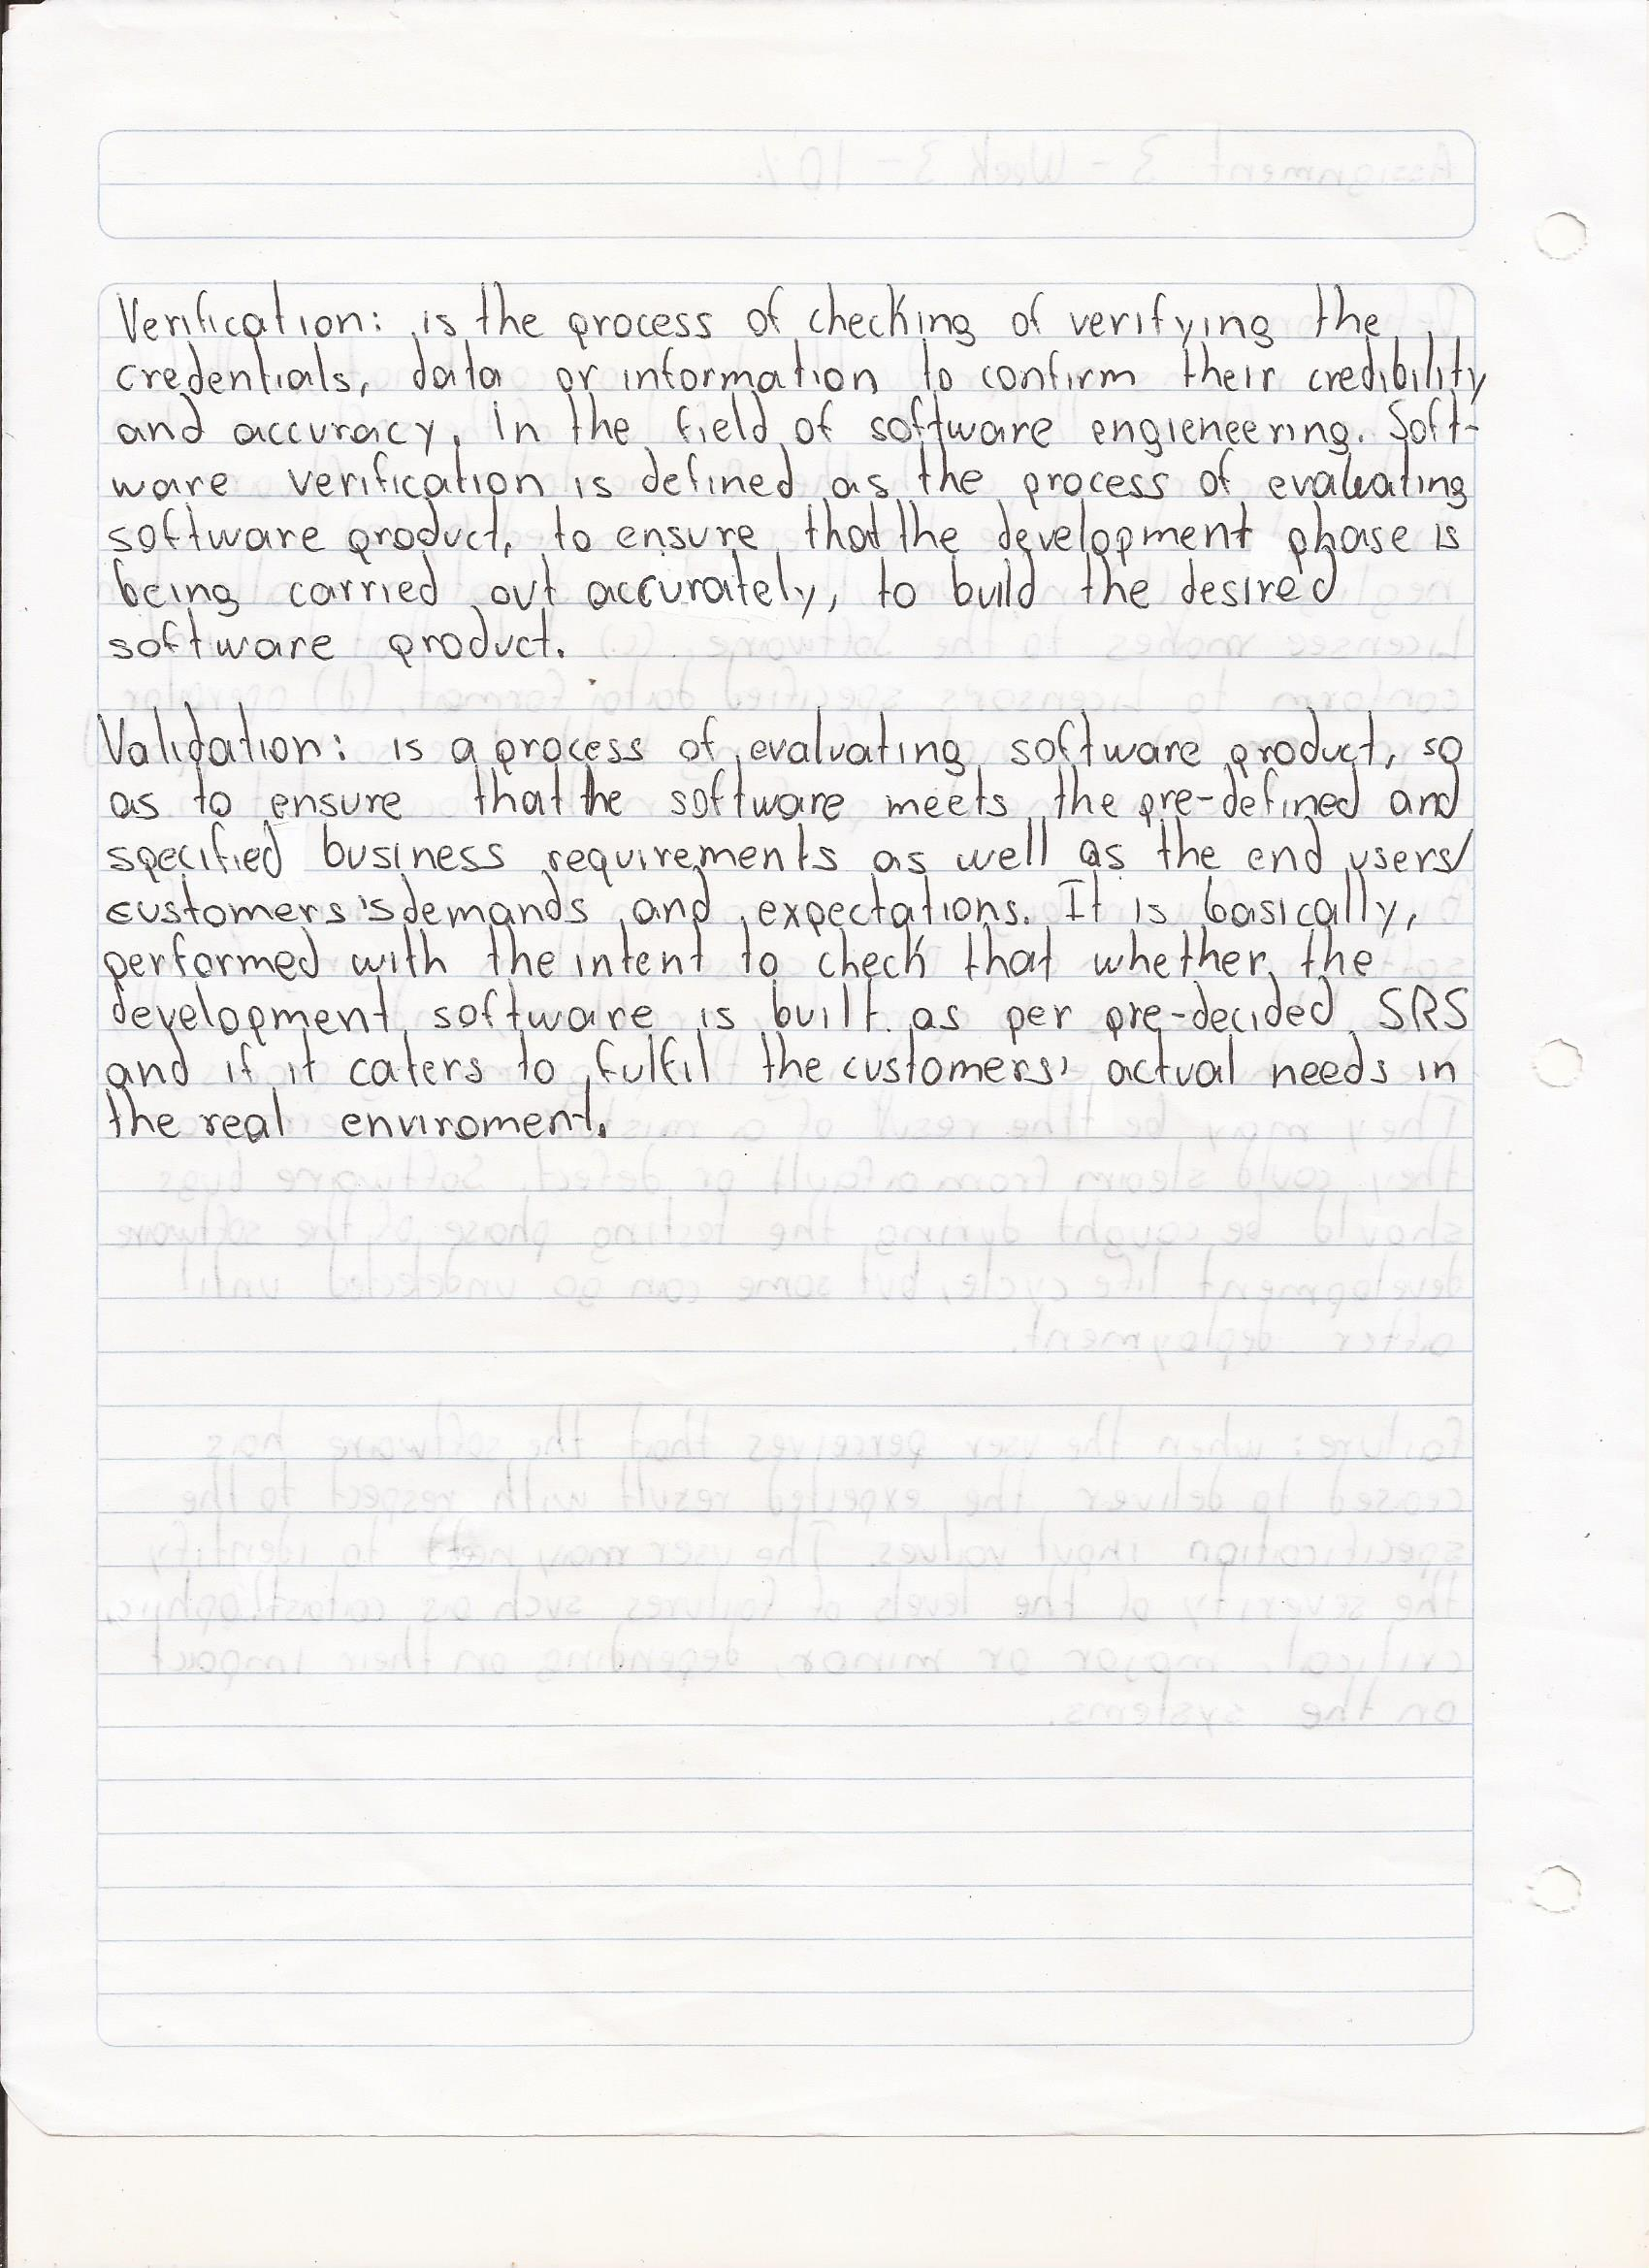 Verification: is the process of checking of verifying the
credentials, data or information to confirm their credibility
and accuracy. In the field of software engieneering. Soft-
ware verification is defined as the process of evaluating
software product, to ensure that the development phase is
being carried out accurately, to build the desired
software product.
Validation: is a process of evaluating software product, so
as to ensure that the software meets the pre-defined and
specified business requirements as well as the end users/
customers's demands and expectations. It is basically,
performed with the intent to check that whether the
development software is built as per pre-decided SRS
and if it caters to fulfil the customers' actual needs in
the real enviroment.